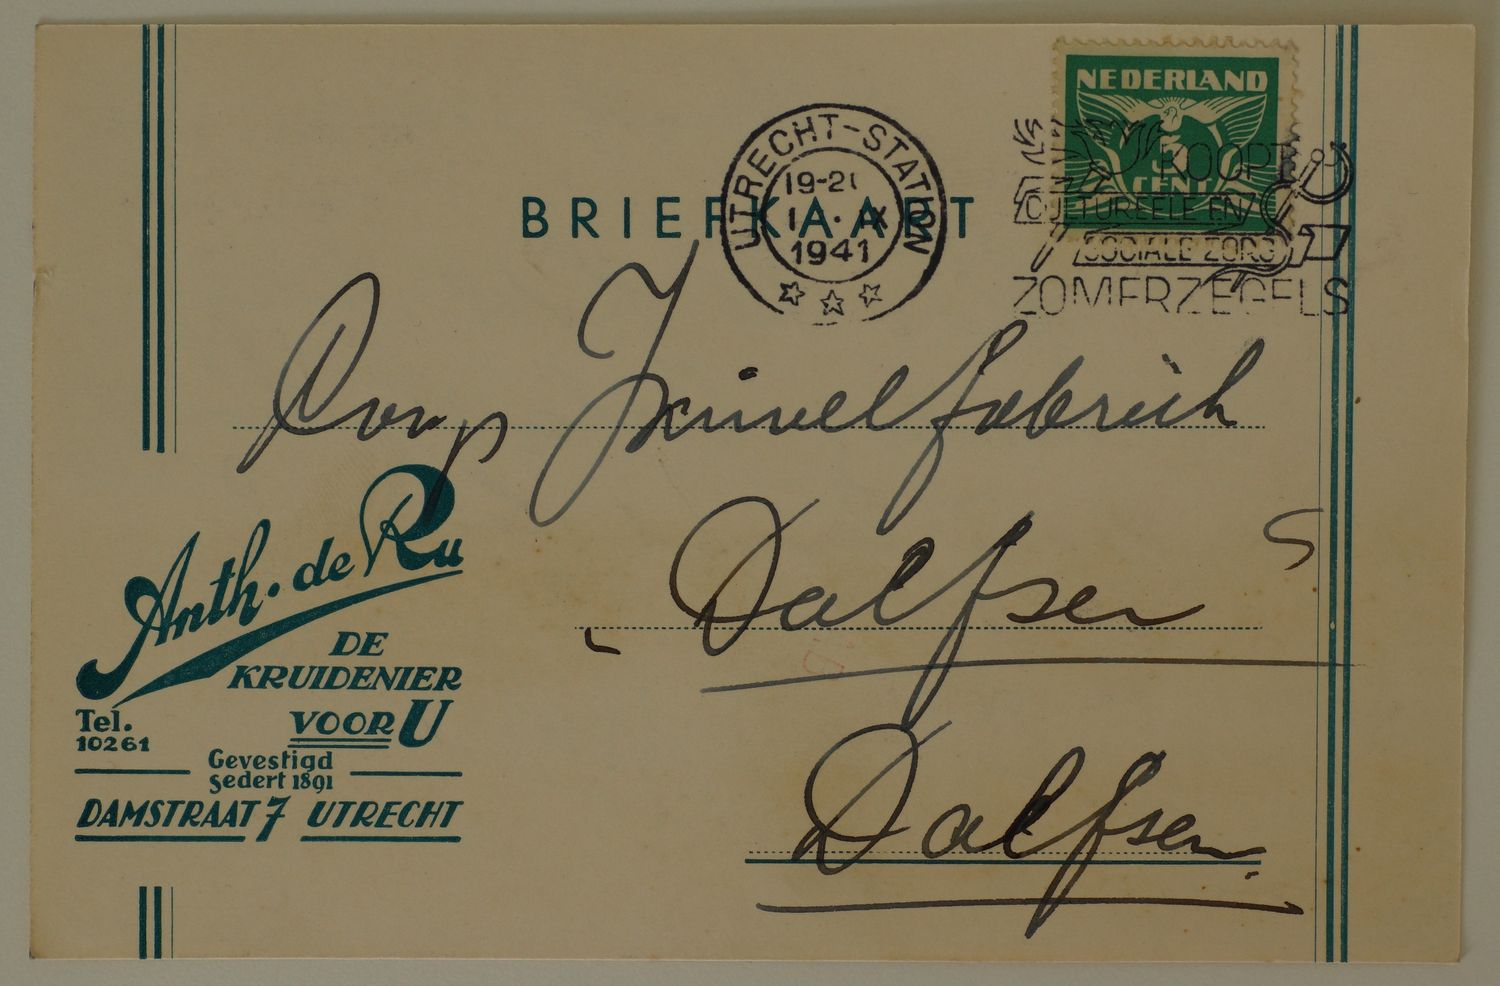 NEDERLAND
3
CENT
UTRECHT-STATION
19-2
1941
KOOPT
CULTUREELE EN
SOCIALE ZORG
ZOMERZEGELS
BRIEFKAART
Coop Zuivelfabriek
Dalfsen
Dalfsen
Anth. de Ru
DE
KRUIDENIER
VOOR U
Tel.
10261
Gevestigd
sedert 1891
DAMSTRAAT 7 UTRECHT